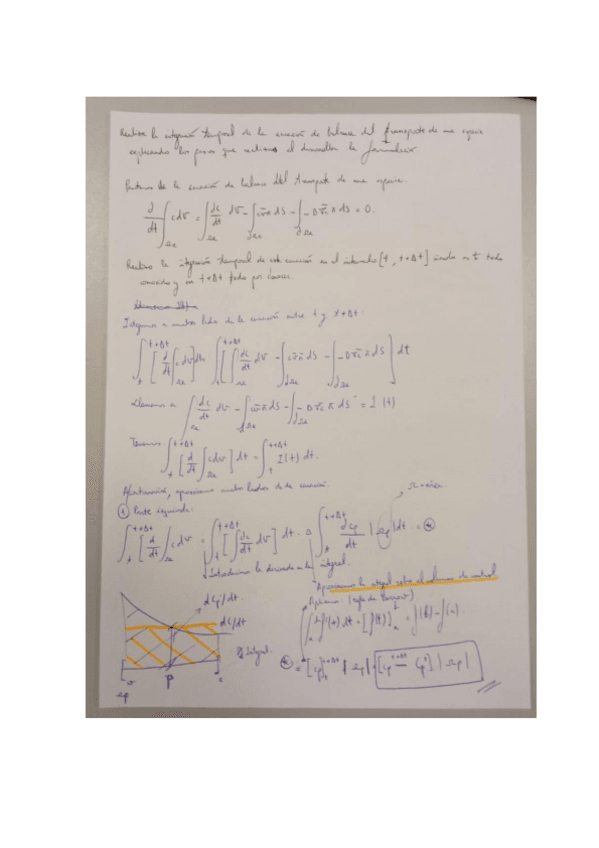 Realizar la integración temporal de la ecuación de balance del transporte de una especie
explicando los pasos que realizas al desarrollar la formulación
Partimos de la ecuación de balance del transporte de una especie
d/dt ∫Ωe c dV = ∫Ωe dc/dt dV - ∫∂Ωe c v̄ n̄ dS - ∫∂Ωe -D ∇c n̄ dS = 0.
Realizo la integración temporal de esta ecuación en el intervalo [t, t+Δt] siendo en t todo
conocido y en t+Δt todo por conocer.
Integramos a ambos lados de la ecuación entre t y t+Δt:
∫t^t+Δt [d/dt ∫Ωe c dV] dt = ∫t^t+Δt [∫Ωe dc/dt dV - ∫∂Ωe c v̄ n̄ dS - ∫∂Ωe -D ∇c n̄ dS] dt
Llamamos a ∫Ωe dc/dt dV - ∫∂Ωe c v̄ n̄ dS - ∫∂Ωe -D ∇c n̄ dS = I(t)
Tenemos: ∫t^t+Δt [d/dt ∫Ωe c dV] dt = ∫t^t+Δt I(t) dt.
A continuación, aproximamos ambos lados de la ecuación:
① Parte izquierda:
Ω = área
∫t^t+Δt [d/dt ∫Ωe c dV = ∫t^t+Δt [∫ dc/dt dV] dt ≈ ∫t^t+Δt dcp/dt |Ωp| dt = (*)
Introducimos la derivada en la integral.
Aproximamos la integral sobre el volumen de control
Aplicamos: (regla de Barrow)
∫a^b f'(t) dt = [f(t)]a^b = f(b) - f(a).
dcp/dt
dc/dt
Integral
P
w
e
Ωp
(*) = [cp]t^t+Δt |Ωp| = [cp^t+Δt - cp^t] |Ωp|